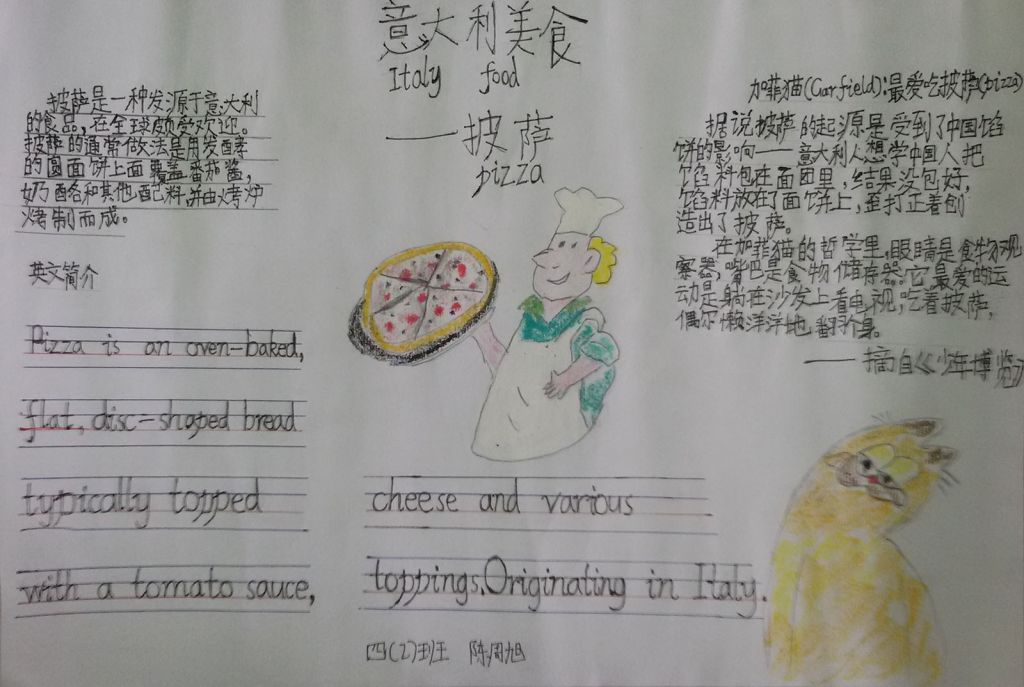 意大利美食
Italy food
——披萨
pizza
披萨是一种发源于意大利
的食品,在全球颇受欢迎。
披萨的通常做法是用发酵
的圆面饼上面覆盖番茄酱,
奶酪和其他配料,并由烤炉
烤制而成。
英文简介
Pizza is an oven-baked,
flat, disc-shaped bread
typically topped
with a tomato sauce,
cheese and various
toppings.Originating in Italy.
加菲猫(Garfield):最爱吃披萨(pizza)
据说披萨的起源是受到了中国馅
饼的影响——意大利人想学中国人把
馅料包在面团里,结果没包好,
馅料放在了面饼上,歪打正着创
造出了披萨。
在加菲猫的哲学里,眼睛是食物观
察器,嘴巴是食物储存器。它最爱的运
动是躺在沙发上看电视,吃着披萨,
偶尔懒洋洋地翻个身。
——摘自《少年博览》
四(2)班 陈周旭